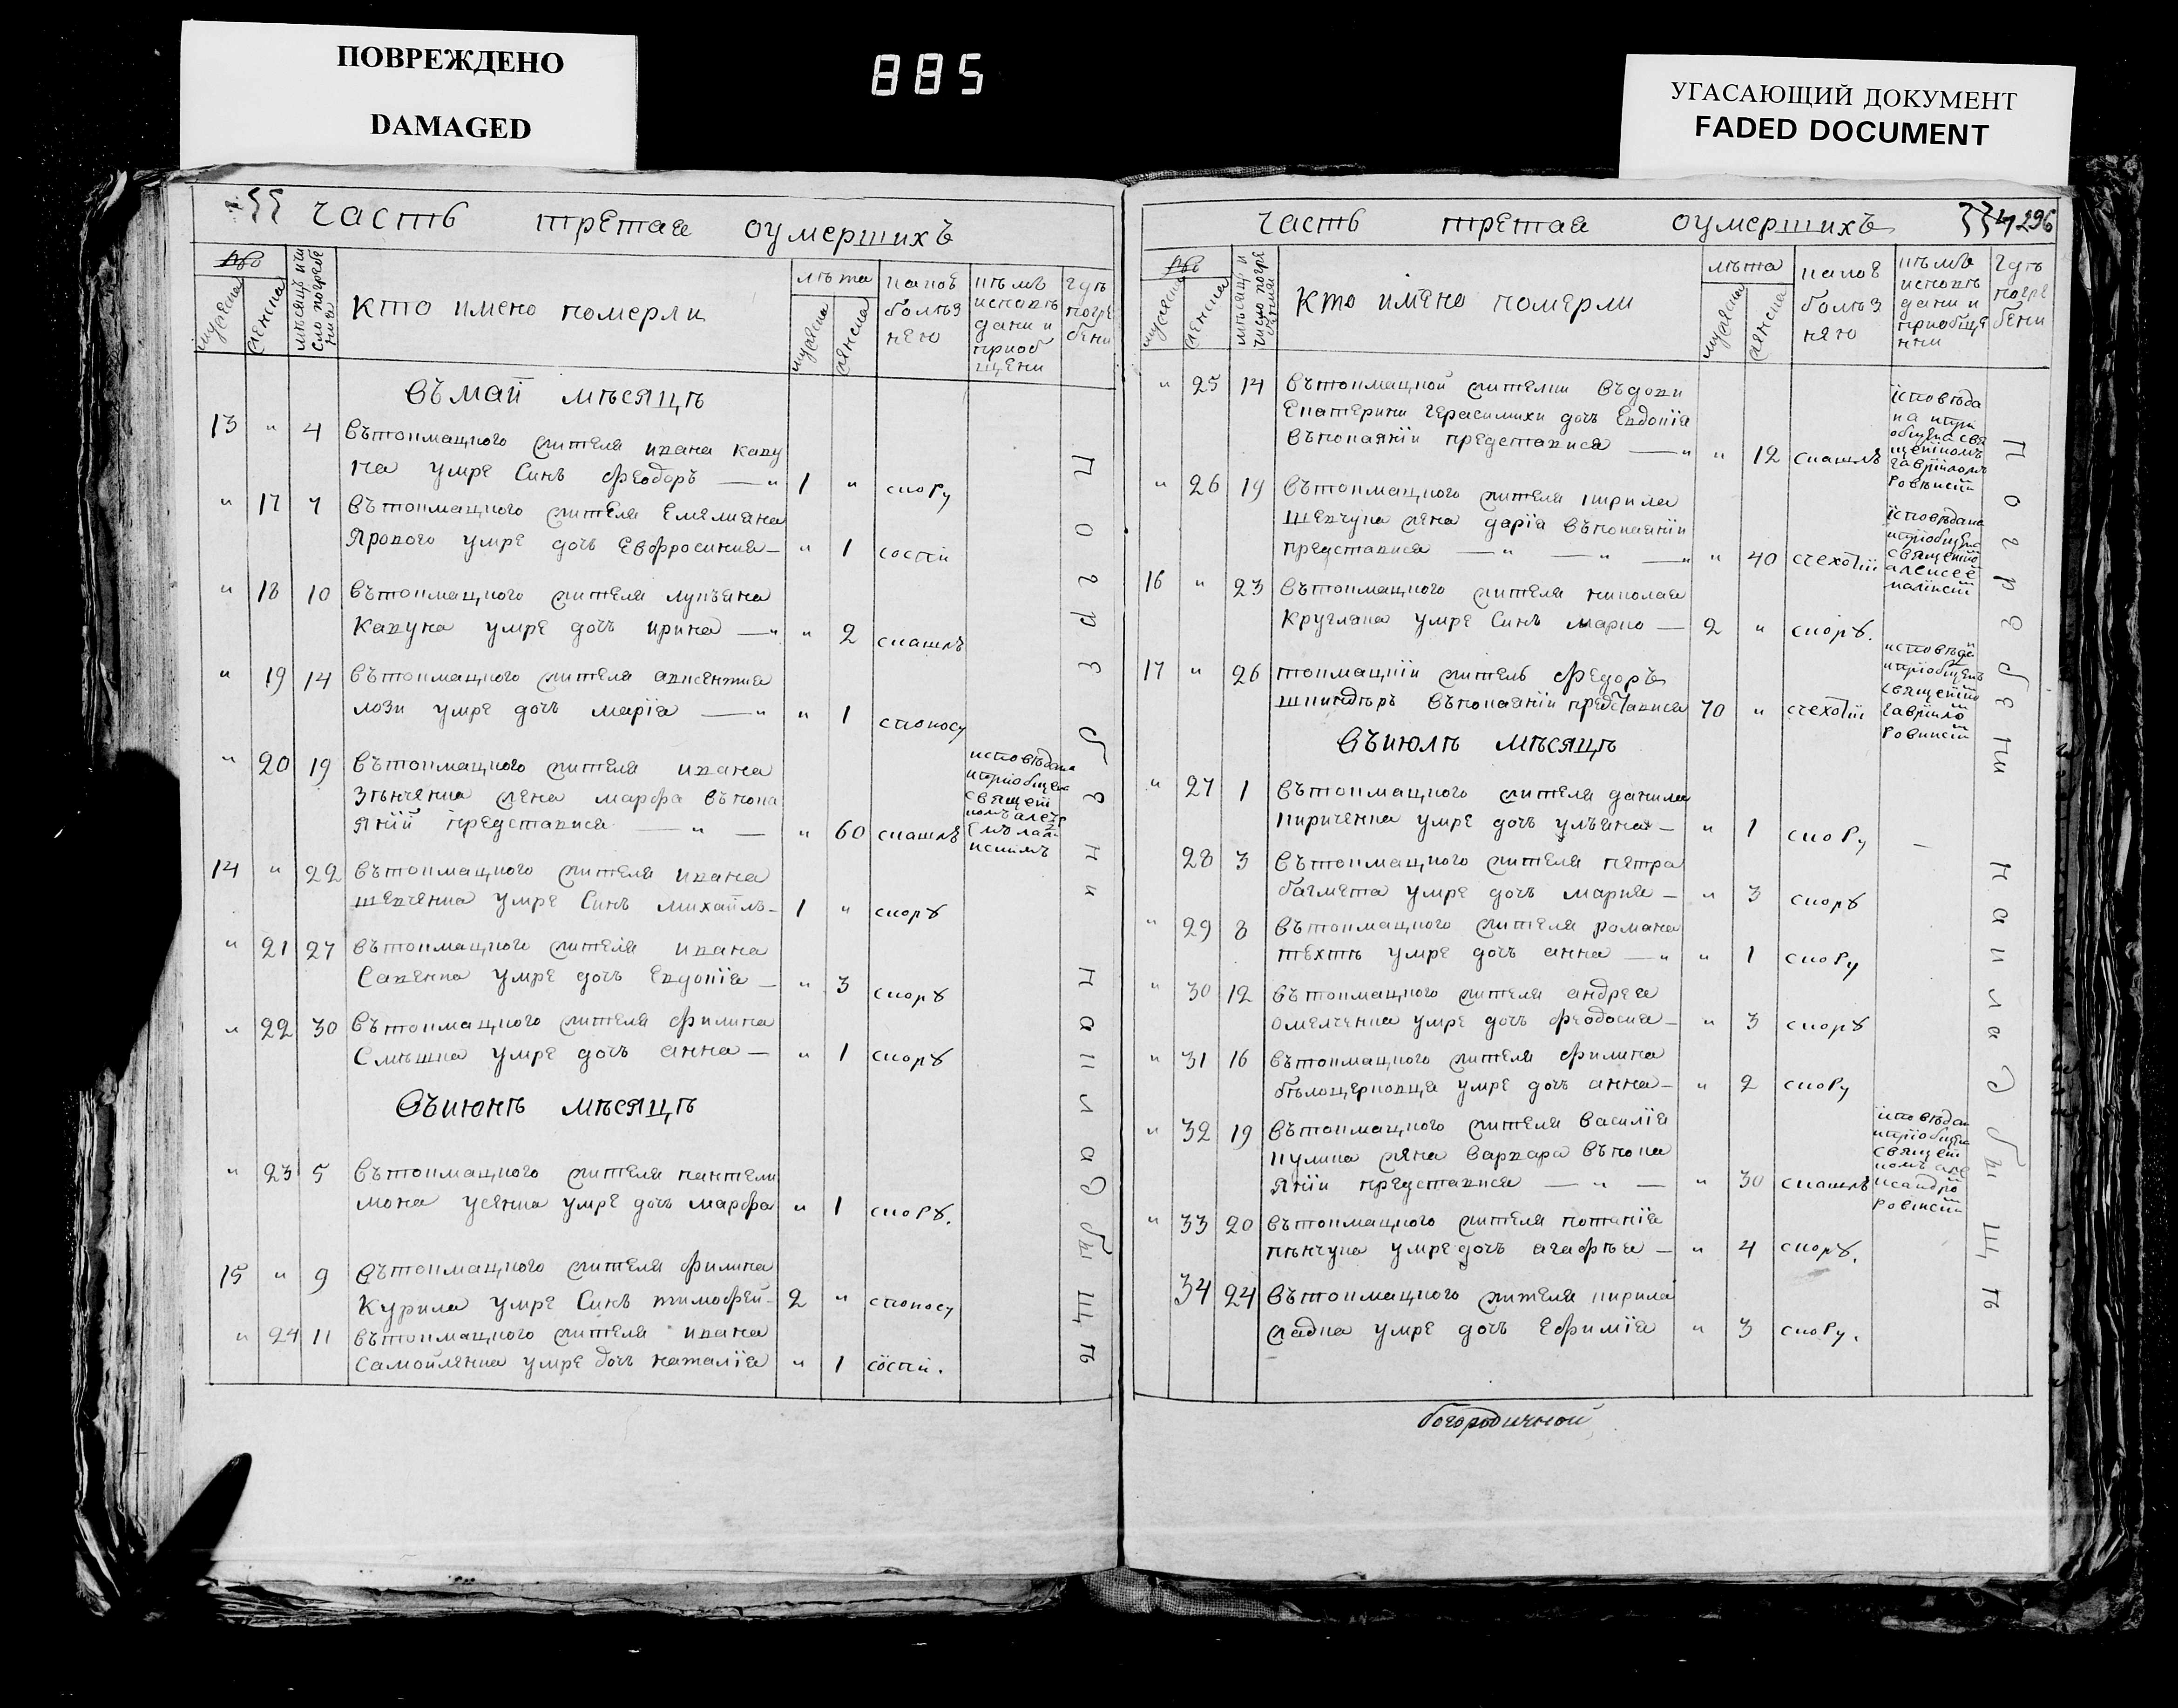 ПОВРЕЖДЕНО
DAMAGED
885
УГАСАЮЩИЙ ДОКУМЕНТ
FADED DOCUMENT
часть третая оумершихъ
мужска
женска
мѣсяцъ и чи
сло погребе
ния
кто имено померли
лѣта
мужска
женска
какою
болѣз
нею
кѣмъ
исповѣ
дани и
приоб
щени
гдѣ
погре
бени
въ май мѣсяцѣ
13 " 4 вътокмацкого жителя ивана каву
на умре Синъ феодоръ — " 1 " скору
" 17 7 вътокмацкого жителя Емелияна
Ярового умре дочъ Евфросиния — " 1 соспи
" 18 10 вътокмацкого жителя лукъяна
Кавуна умре дочъ ирина — " " 2 скашлъ
" 19 14 вътокмацкого жителя авксентия
лози умре дочъ маріа — " " 1 споносу
" 20 19 вътокмацкого жителя ивана
Зѣнченка жена марфа въпока
яній преставися — " — " 60 скашлъ
исповѣдана
ипріобщена
священ
номъ алеѯ
14 " 22 вътокмацкого жителя ивана
шевченка умре Синъ михаилъ - 1 " скорꙋ
" 21 27 вътокмацкого жителя ивана
Савенка умре дочъ Евдокіа — " 3 скорꙋ
" 22 30 вътокмацкого жителя филипа
Смѣшка умре дочъ анна — " 1 скорꙋ
Въиюнѣ мѣсяцѣ
" 23 5 вътокмацкого жителя пантели
мона усенка умре дочъ марфа " 1 скорꙋ.
15 " 9 вътокмацкого жителя филипа
Курила умре Синъ тимофей - 2 " споносу
" 24 11 вътокмацкого жителя ивана
Самойленка умре дочъ наталіа " 1 соспи.
Погребени на кладбыщѣ
часть третая оумершихъ 334 296
мужска
женска
мѣсяцъ и
число погре
бения
кто имено померли
лѣта
мужска
женска
какою
болѣз
нею
кѣмъ
исповѣ
дани и
приобще
нни
гдѣ
погре
бени
" 25 14 вътокмацкой жителки въдови
Екатерини герасимихи дочъ Евдокіа
въпокаяніи преставися — " " 12 скашлъ
исповѣда
на ипри
общена свя
щенномъ
гавріиломъ
ровѣнски
" 26 19 вътокмацкого жителя кирила
шевчука жена даріа въпокаяніи
преставися — " — " — " " 40 счехоткі
исповѣдана
ипріобщена
священно
алексее
16 " 23 вътокмацкого жителя николая
Круглака умре Синъ марко — 2 " скорꙋ.
17 " 26 токмацкій житель федоръ
шпиндѣръ въпокаяніи преставися 70 " счехоткі
исповѣда
ипріобщенъ
священно
гавріило
ровински
Въиюлѣ мѣсяцѣ
" 27 1 вътокмацкого жителя данила
кириченка умре дочъ улъяна — " 1 скору —
28 3 вътокмацкого жителя петра
багмета умре дочъ мария — " 3 скорꙋ
" 29 8 вътокмацкого жителя романа
техтѣ умре дочъ анна — " " 1 скору
" 30 12 вътокмацкого жителя андрея
омелченка умре дочъ феодосиа — " 3 скорꙋ
" 31 16 вътокмацкого жителя филипа
бѣлоцерковца умре дочъ анна — " 2 скору
" 32 19 вътокмацкого жителя василіа
кулика жена варвара въпока
яніи преставися — " — " 30 скашлъ
исповѣдан
ипріобщена
священ
номъ але
ксандро
ровински
" 33 20 вътокмацкого жителя потапіа
пѣнчука умре дочъ агафѣа — " 4 скорꙋ.
34 24 вътокмацкого жителя кирила
гладка умре дочъ Ефиміа " 3 скору.
Погребени на кладбыщѣ
богородичной